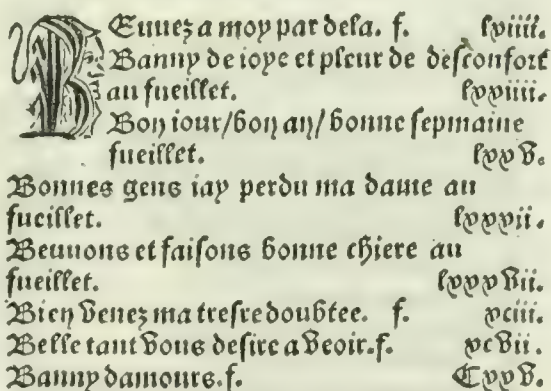 BEuuez a moy par dela. f. lxiiii.
Banny de ioye et pleur de desconfort
au fueillet. lxxiiii.
Bon iour/bon an/ bonne sepmaine
fueillet. lxxv.
Bonnes gens iay perdu ma dame au
fueillet. lxxxii.
Beuuons et faisons bonne chiere au
fueillet. lxxxvii.
Bien venez ma tresredoubtee. f. xciii.
Belle tant vous desire a veoir.f. xcvii.
Banny damours.f. Cxxv.